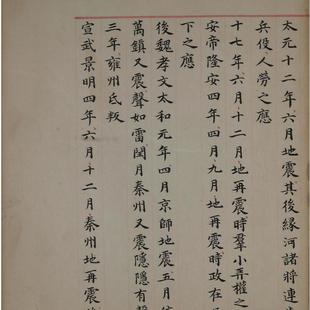 太元十二年六月地震其後緣河諸將連
兵役人勞之應
十七年六月十二月地再震時羣小弄權之
安帝隆安四年四月九月地再震時政在
下之應
後魏孝文太和元年四月京師地震五月
萬鎮又震聲如雷閏月秦州又震隱隱有
三年雍州氐叛
宣武景明四年六月十二月秦州地再震